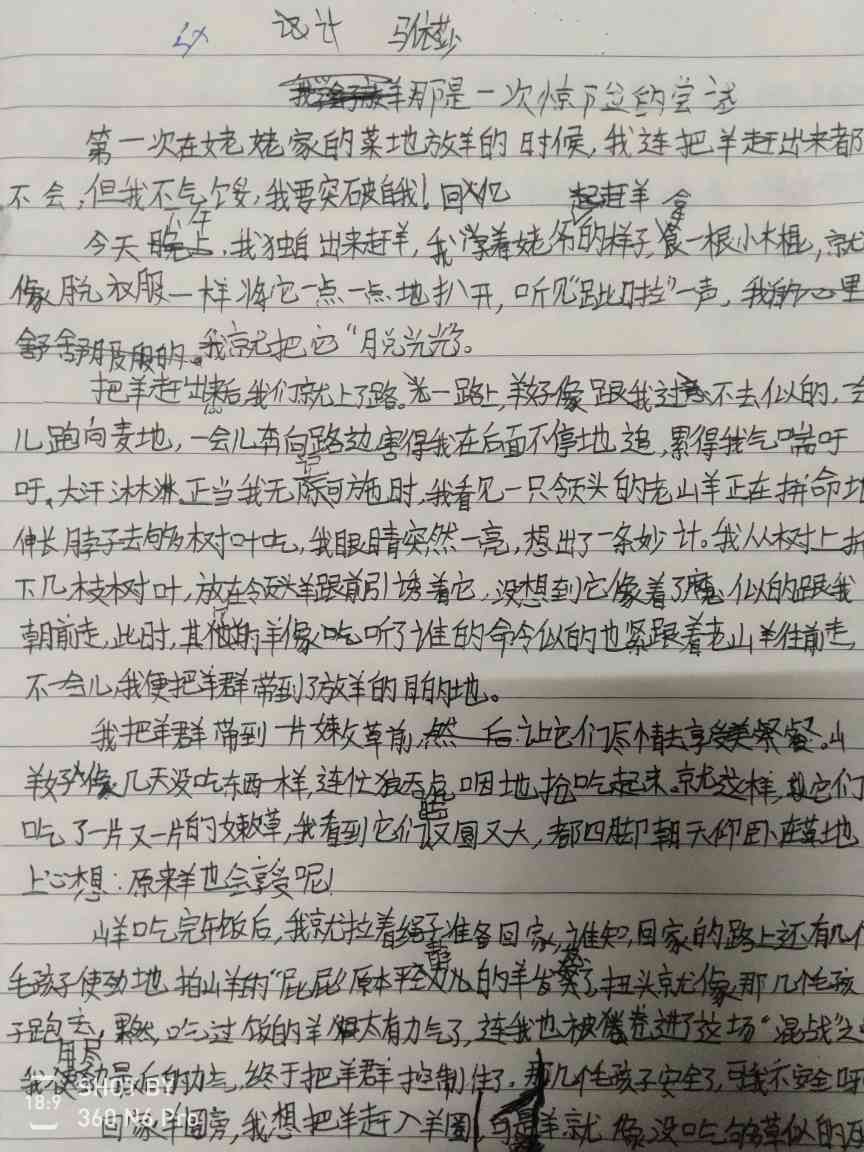 设计 马依莎
那是一次惊险的尝试
第一次在姥姥家的菜地放羊的时候，我连把羊赶出来都
不会，但我不气馁，我要突破自我！回忆 起赶羊
今天下午，我独自出来赶羊，我学着姥爷的样子，拿一根小木棍，就
像脱衣服一样将它一点一点地扒开，听见"呲啦"一声，我的心里
舒舒服服的。我就把它"脱光光"了。
把羊赶出来后，我们就上了路。一路上，羊好像跟我过意不去似的，一会
儿跑向麦地，一会儿奔向路边，害得我在后面不停地追，累得我气喘吁
吁，大汗淋淋。正当我无计可施时，我看见一只领头的老山羊正在拼命地
伸长脖子去够树叶吃，我眼睛突然一亮，想出了一条妙计。我从树上折
下几枝树叶，放在领头羊跟前引诱着它，没想到它像着了魔似的跟我
朝前走，此时，其他的羊像吃听了谁的命令似的也紧跟着老山羊往前走，
不一会儿，我便把羊群带到了放羊的目的地。
我把羊群带到一片嫩草前，然后让它们尽情去享受美餐。山
羊好像几天没吃东西一样，连忙狼吞虎咽地抢吃起来。就这样，它们
吃了一片又一片的嫩草，我看到它们肚又圆又大，都四脚朝天仰卧在草地
上心想：原来羊也会享受呢！
山羊吃完午饭后，我就拉着绳子准备回家，谁知，回家的路上还有几个
毛孩子使劲地拍山羊的"屁屁"原本平静的羊发怒了，扭头就像那几个毛孩
子跑去，果然，吃过饭的羊太有力气了，连我也被卷进了这场"混战"之
我用尽最后的力气，终于把羊群控制住了。那几个毛孩子安全了，可我不安全呀
回家羊圈旁，我想把羊赶入羊圈，可是羊就像没吃够草似的
SHOT BY
18:9
360 N6 Pro